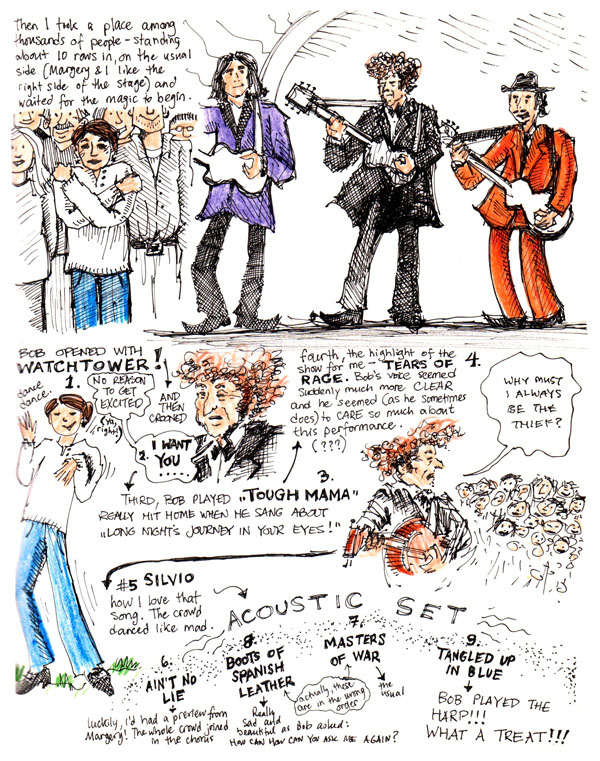 Then I took a place among
thousands of people - standing
about 10 rows in, on the usual
side (Margery & I like the
right side of the stage) and
waited for the magic to begin.
BOB OPENED WITH
WATCHTOWER!
1.
dance
dance
NO REASON
TO GET
EXCITED
(Yo,
right)
AND
THEN
CROONED
2.
I WANT
YOU ....
3.
THIRD, BOB PLAYED "TOUGH MAMA"
REALLY HIT HOME WHEN HE SANG ABOUT
"LONG NIGHT'S JOURNEY IN YOUR EYES!"
4.
fourth, the highlight of the
show for me - TEARS OF
RAGE. Bob's voice seemed
suddenly much more CLEAR
and he seemed (as he sometimes
does) to CARE so much about
this performance.
(???)
WHY MUST
I ALWAYS
BE THE
THIEF?
#5 SILVIO
how I love that
song. The crowd
danced like mad.
ACOUSTIC SET
6.
AIN'T NO
LIE
luckily, I'd had a preview from
Margery! The whole crowd joined
in the chorus
8.
BOOTS OF
SPANISH
LEATHER
Really
sad and
beautiful as Bob asked:
HOW CAN HOW CAN YOU ASK ME AGAIN?
7.
MASTERS
OF WAR
actually, these
are in the wrong
order
the
usual
9.
TANGLED UP
IN BLUE
BOB PLAYED THE
HARP!!!
WHAT A TREAT!!!